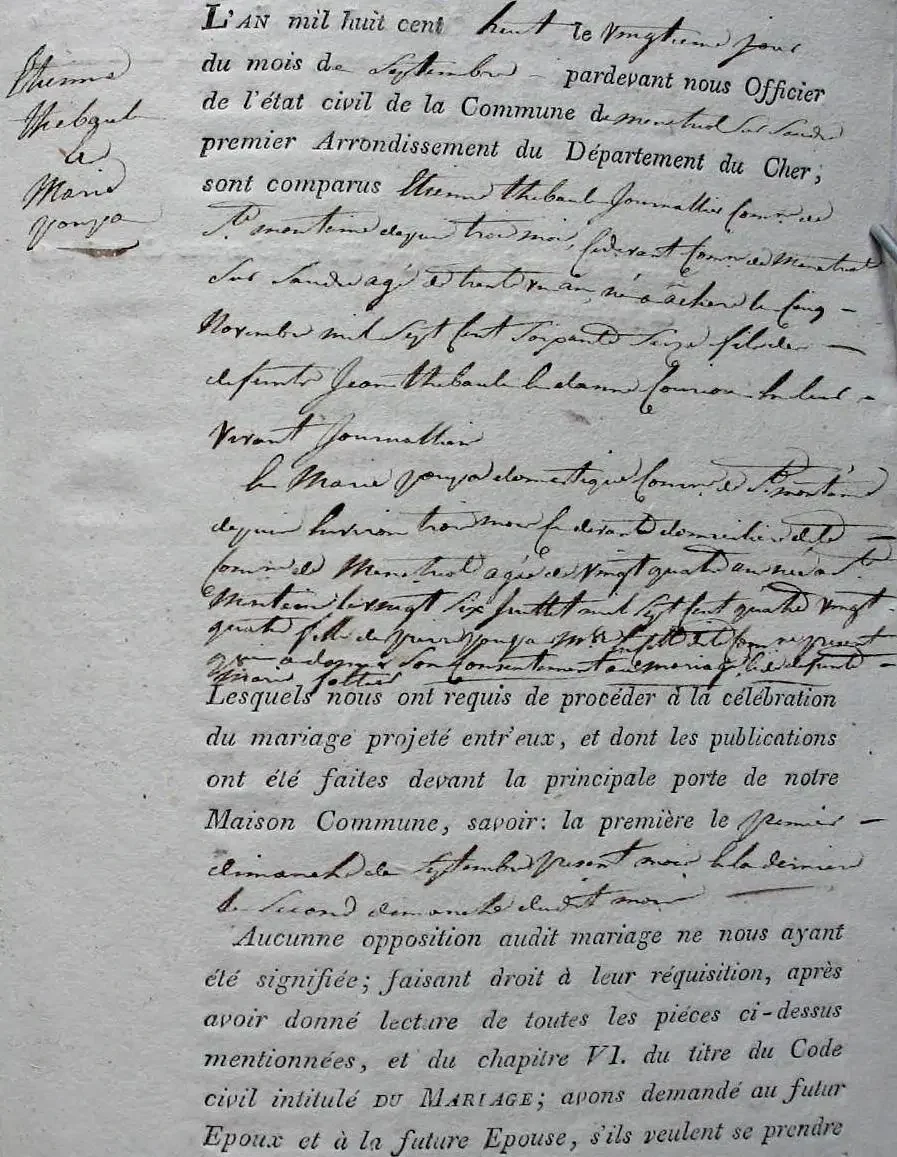 Etienne
Thibault
&
Marie
L'AN mil huit cent huit le vingtieme jour
du mois de Septembre – pardevant nous Officier
de l'état civil de la Commune de menetriol sur Sandre
premier Arrondissement du Département du Cher;
sont comparus Etienne thibault Journallier Comne. de
St. montaine depuis trois mois, Cidevant Comne. de Menetriol
sur Sandre agé de trente un an, né à achere le Cinq –
Novembre mil Sept Cent Soixante Seize fils de –
defunts Jean thibault & danne en leur
vivant Journallier
& Marie domestique Comne. de St. montaine
depuis Environ trois mois Cidevant domiciliée de la –
Comne. de Menetriol agée de vingt quatre an née a St.
Montaine le vingt Six Juillet mil Sept Cent quatre vingt
quatre fille de present
qui a donné Son Consentement au mariage & de defunte –
Marie
Lesquels nous ont requis de procéder à la célébration
du mariage projeté entr'eux, et dont les publications
ont été faites devant la principale porte de notre
Maison Commune, savoir: la première le premier –
dimanche de Septembre present mois & la derniere
le Second dimanche dudit mois
Aucunne opposition audit mariage ne nous ayant
été signifiée; faisant droit à leur réquisition, après
avoir donné lecture de toutes les piéces ci-dessus
mentionnées, et du chapitre VI. du titre du Code
civil intitulé DU MARIAGE; avons demandé au futur
Epoux et à la future Epouse, s'ils veulent se prendre